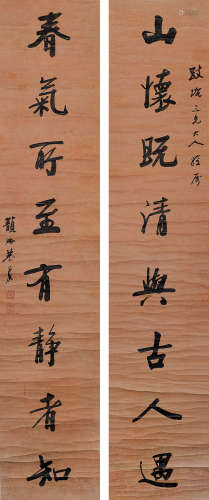 山懷既清與古人遇
三兄大人
春氣所至有靜者知